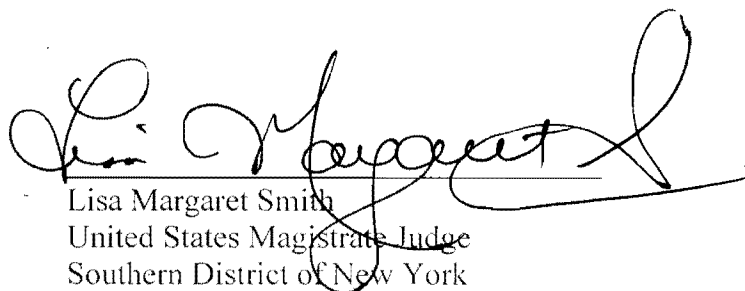 Lisa Margaret S
Lisa Margaret Smith
United States Magistrate Judge
Southern District of New York